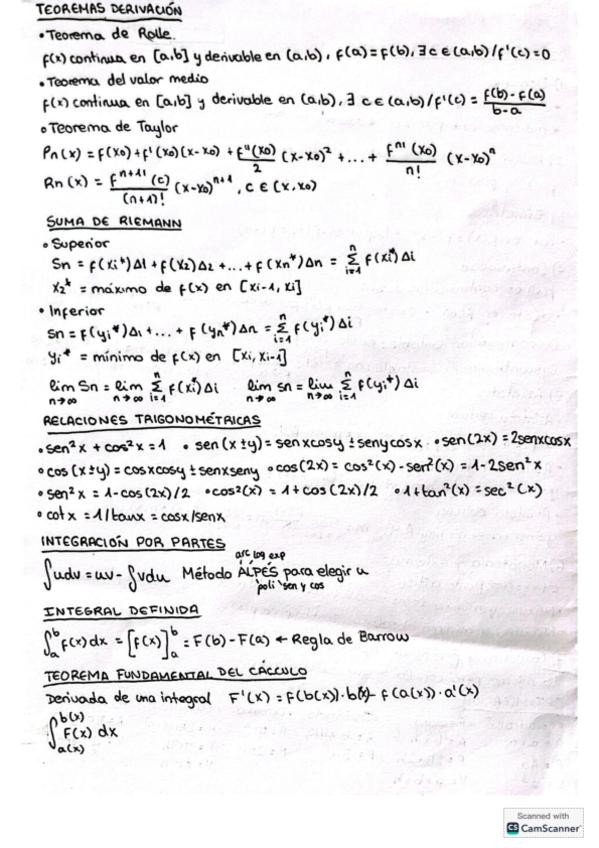 TEOREMAS DERIVACIÓN
• Teorema de Rolle.
f(x) continua en [a,b] y derivable en (a,b), f(a)=f(b), ∃ c ∈ (a,b)/f'(c)=0
• Teorema del valor medio
f(x) continua en [a,b] y derivable en (a,b), ∃ c ∈ (a,b)/f'(c) = (f(b)-f(a))/(b-a)
• Teorema de Taylor
Pn(x) = f(x0)+f'(x0)(x-x0) + f''(x0)/2 (x-x0)² + ... + f^n)(x0)/n! (x-x0)^n
Rn(x) = f^n+1)(c)/(n+1)! (x-x0)^n+1, c ∈ (x,x0)
SUMA DE RIEMANN
• Superior
Sn = f(xi*)Δ1 + f(x2)Δ2 + ... + f(xn*)Δn = Σ_{i=1}^n f(xi*)Δi
x2* = máximo de f(x) en [xi-1, xi]
• Inferior
sn = f(yi*)Δ1 + ... + f(yn*)Δn = Σ_{i=1}^n f(yi*)Δi
yi* = mínimo de f(x) en [xi, xi-1]
lim_{n→∞} Sn = lim_{n→∞} Σ_{i=1}^n f(xi*)Δi lim_{n→∞} sn = lim_{n→∞} Σ_{i=1}^n f(yi*)Δi
RELACIONES TRIGONOMÉTRICAS
• sen²x + cos²x = 1 • sen(x±y) = senxcosy ± senycosx • sen(2x) = 2senxcosx
• cos(x±y) = cosxcosy ± senxseny • cos(2x) = cos²(x) - sen²(x) = 1-2sen²x
• sen²x = 1-cos(2x)/2 • cos²(x) = 1+cos(2x)/2 • 1+tan²(x) = sec²(x)
• cotx = 1/tanx = cosx/senx
INTEGRACIÓN POR PARTES
arc log exp
∫udv = uv - ∫vdu Método ALPES para elegir u
poli sen y cos
INTEGRAL DEFINIDA
∫_a^b f(x)dx = [F(x)]_a^b = F(b) - F(a) ← Regla de Barrow
TEOREMA FUNDAMENTAL DEL CÁLCULO
Derivada de una integral F'(x) = f(b(x))·b'(x) - f(a(x))·a'(x)
∫_{a(x)}^{b(x)} F(x) dx
Scanned with
CS CamScanner